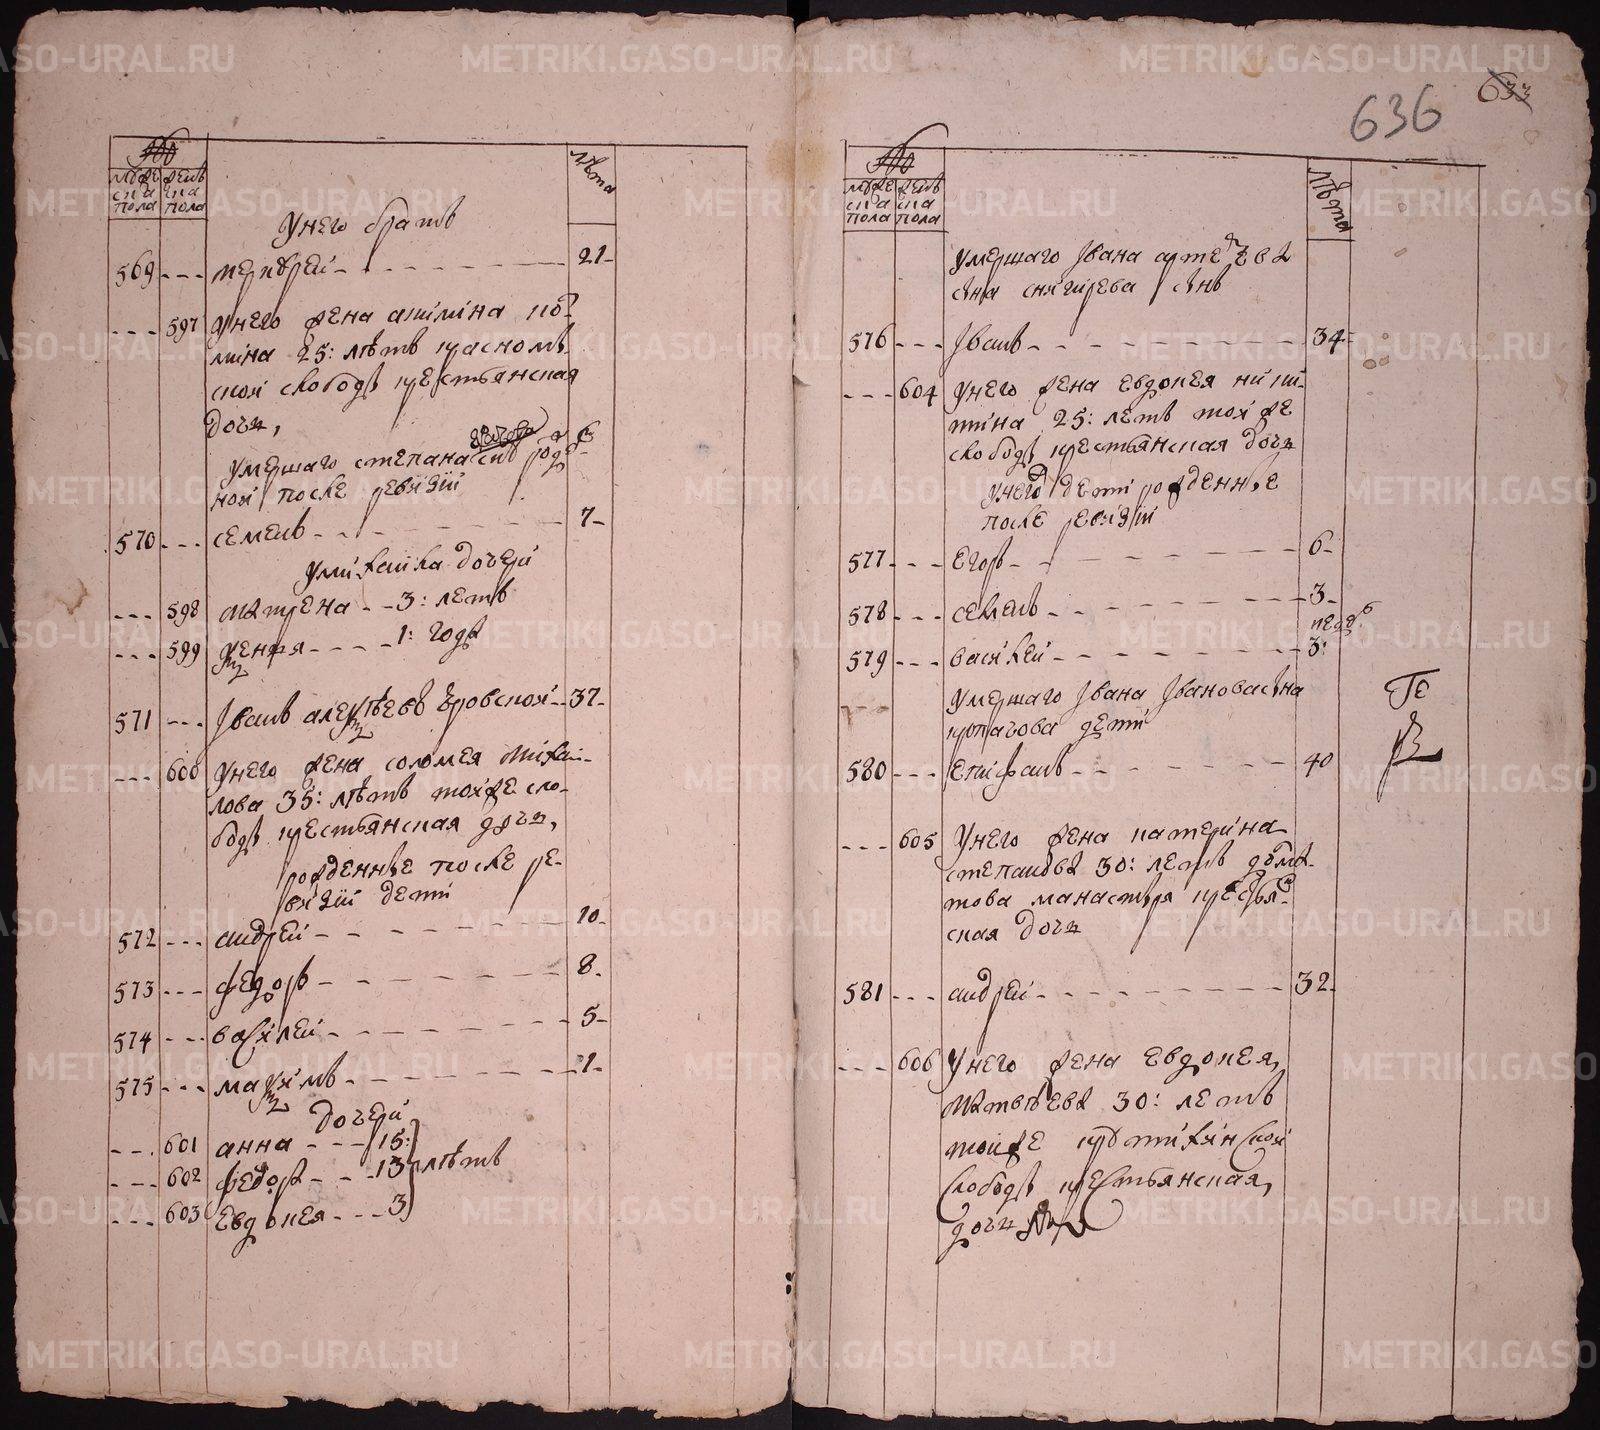 мужеска пола
женска пола
лѣта
У него братъ
569 --- мендрей - 21
--- 597 У него жена акилина
мина 25: лѣтъ красномы
ской слободѣ крестьянская
дочь,
Умершаго степана сынъ рожде
ной после ревизии
570 --- семенъ - 7
У михаила дочери
--- 598 Матрена -- 3: летъ
--- 599 ксенья ---- 1: годъ
571 --- Іванъ алексѣевъ боровской -- 37
--- 600 У него жена соломея михаи-
лова 35: лѣтъ тойже сло-
бодѣ крестьянская дочь,
рожденные после ре-
визии дети
572 --- андрей - 10
573 --- федоръ - 8
574 --- василей - 5
575 --- максимъ - 1
дочери
--- 601 анна --- 15:
--- 602 федора --- 13 лѣтъ
--- 603 Евдокея --- 3
636
633
мужеска пола
женска пола
лѣта
Умершаго Івана артемьева
сна снягирева снъ
576 --- Іванъ - 34
--- 604 У него жена евдокея ники-
тина 25: летъ той же
слободѣ крестьянская дочь
у него дети рожденные
после ревизии
577 --- Егоръ - 6
578 --- семенъ - 3
недѣ
579 --- василей - 3:
Умершаго Івана Іванова сна
дети
580 --- Епифанъ - 40
--- 605 У него жена катерина
степанова 30: летъ долма-
това манастыря кресья-
ская дочь
581 --- андрей - 32
--- 606 У него жена евдокея,
матвѣева 30: летъ
тойже крутихинской
слободѣ крестьянская,
дочь
METRIKI.GASO-URAL.RU